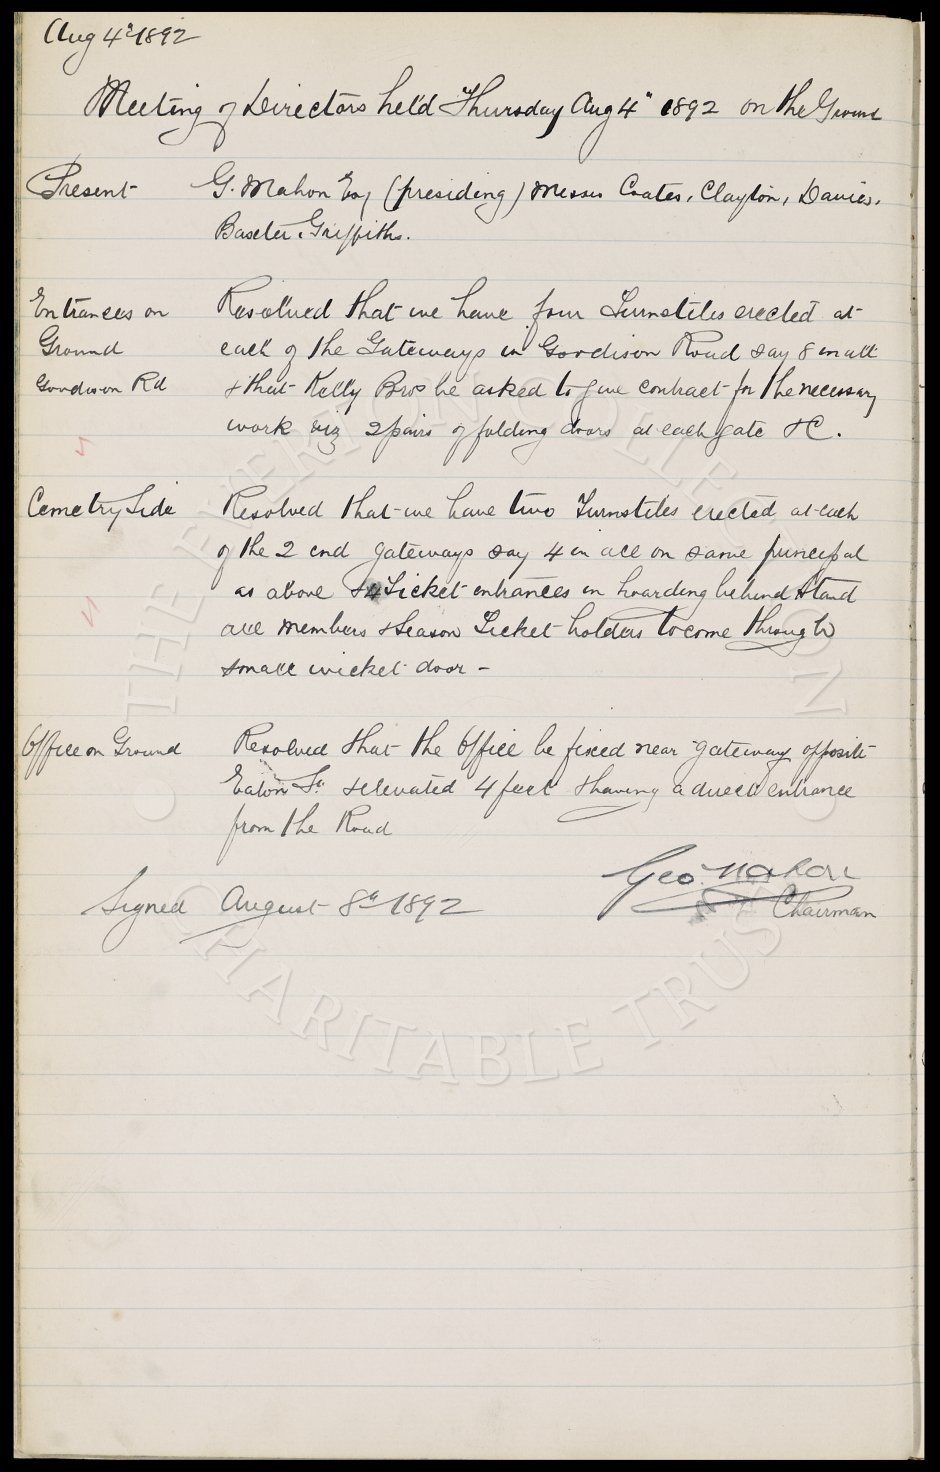 Aug 4th 1892
Meeting of Directors held Thursday Aug 4" 1892 on the Ground
Present G. Mahon Esq (presiding) Messrs Coates, Clayton, Davies,
Baxter, Griffiths.
Entrances on Resolved that we have four Turnstiles erected at
Ground each of the Gateways in Goodison Road say 8 in all
Goodison Rd & that Kelly Bros be asked to give contract for the necessary
work viz 2 pairs of folding doors at each gate &C.
Cemetry Side Resolved that we have two Turnstiles erected at each
of the 2 end gateways say 4 in all on same principal
as above & 4 Ticket entrances in hoarding behind Stand
all members & Season Ticket holders to come through
small wicket door -
Office on Ground Resolved that the Office be fixed near gateway opposite
Eaton St. & elevated 4 feet & having a direct entrance
from the Road
Geo. Mahon
Signed August 8th 1892 Chairman
THE EVERTON COLLECTION
CHARITABLE TRUST